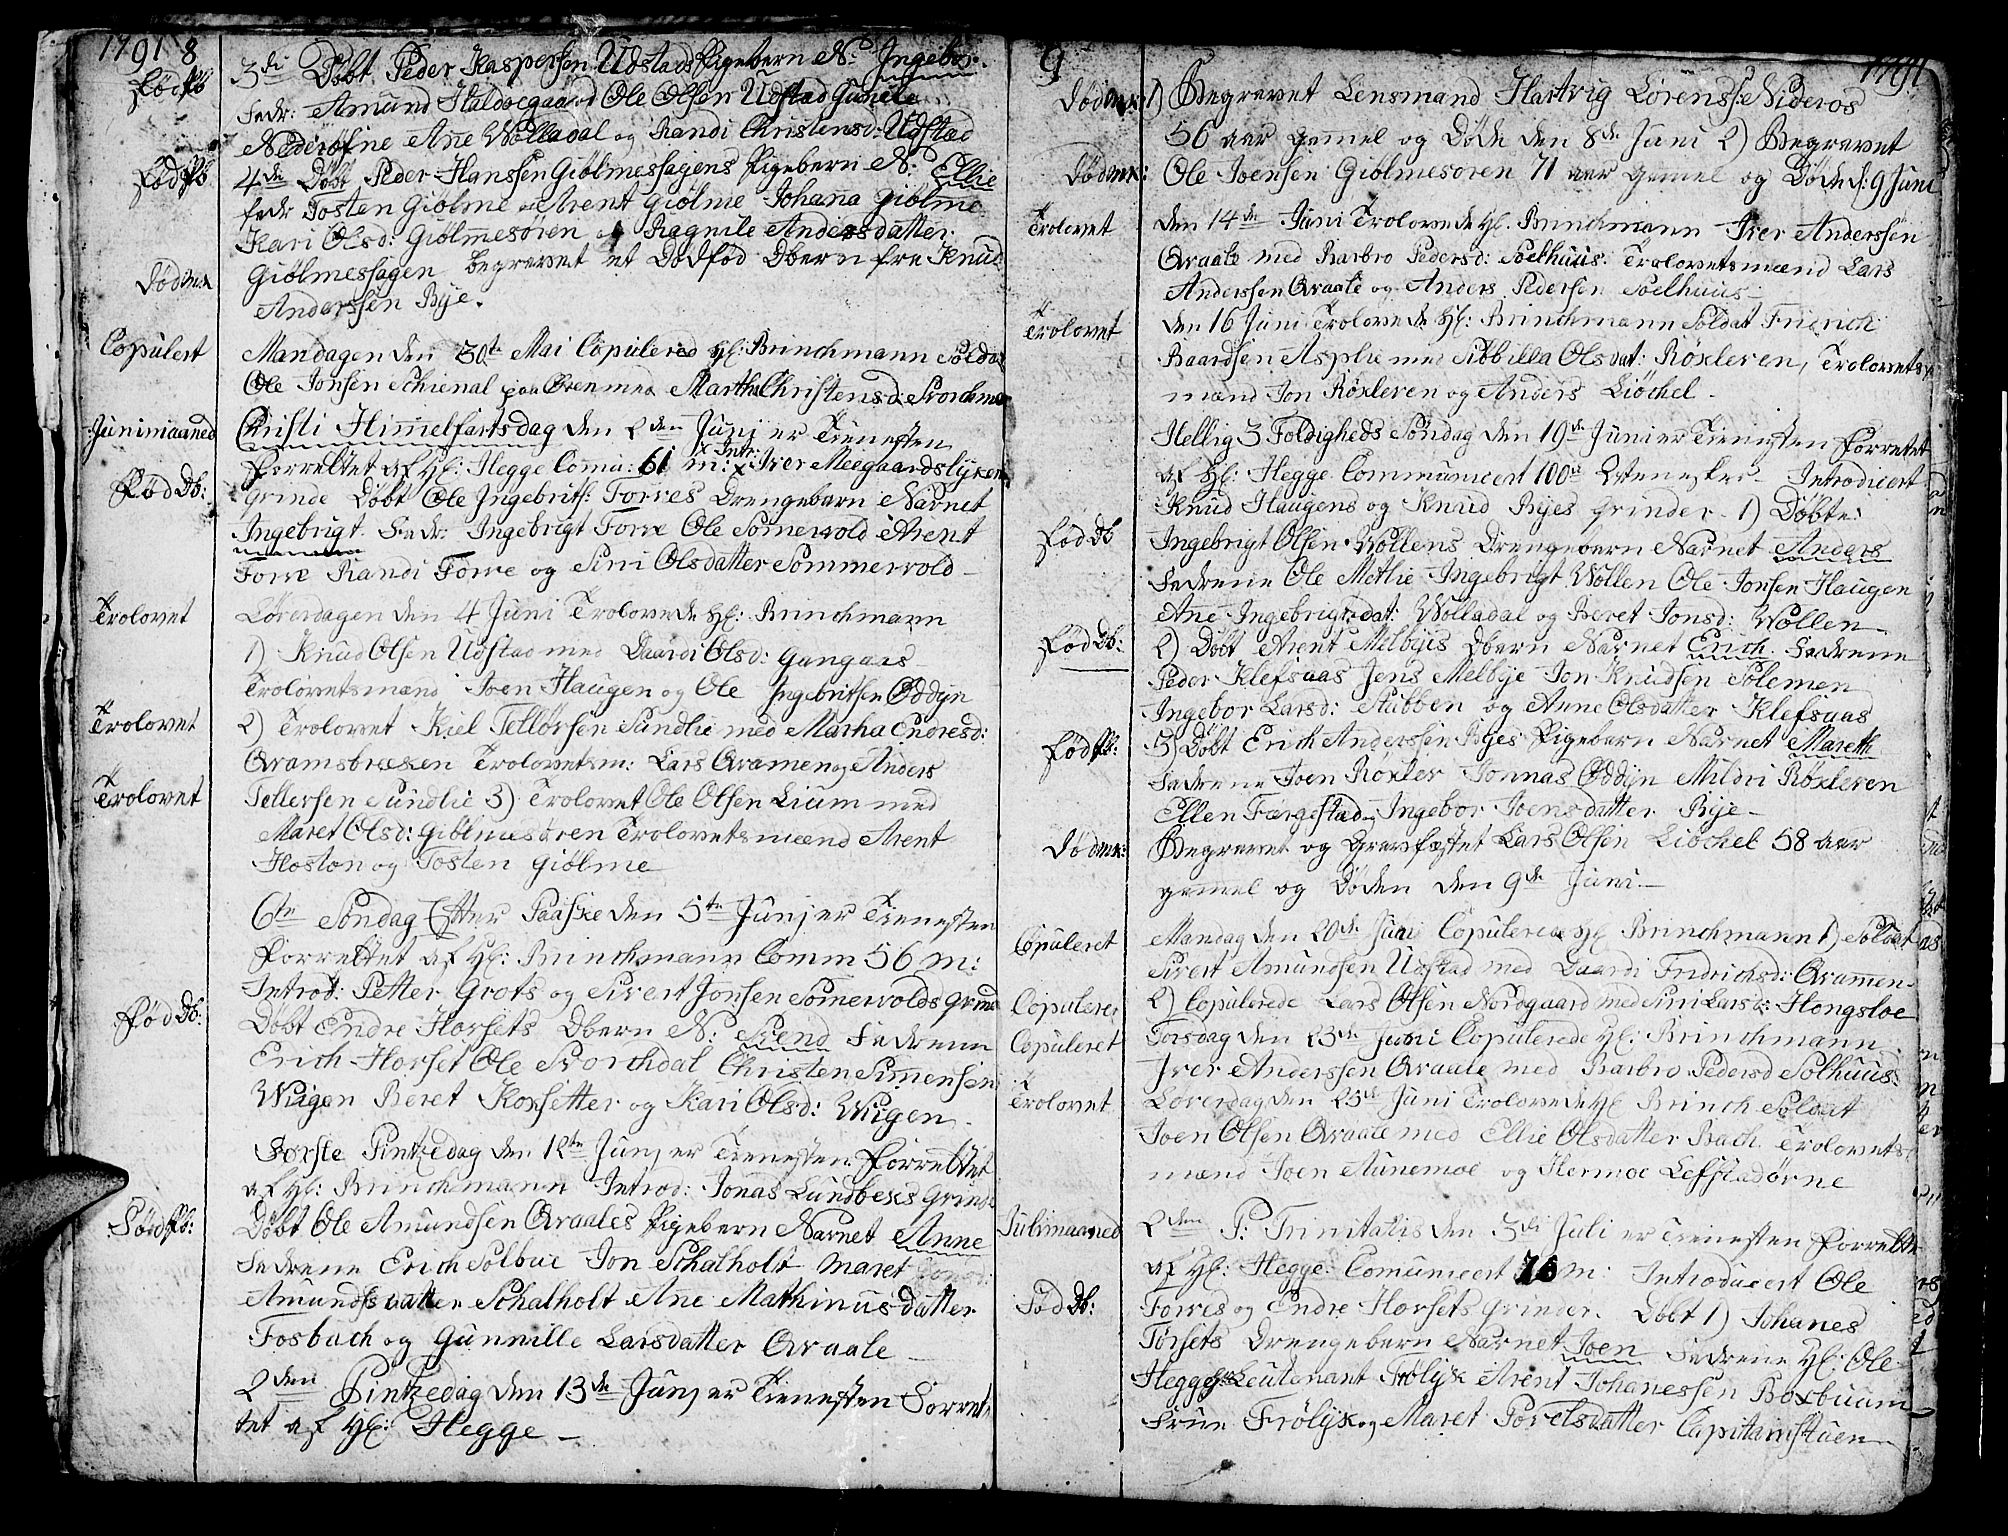 1791 8
Fød Pb
3die Døbt Peder Kaspersen Udstads Pigebern N: Ingebor.
Fadr: Amund Haldosgaard Ole Olsen Udstad Gunele
Nederøfne Ane Wolladal og Randi Christensd: Udstad
Fød Pb:
4de Døbt Peder Hanssen Giølmeshagens Pigebern N: Ellie
fadr Tosten Giølme Arent Giølme Johana Giølme
Kari Olsd: Giølmesøren og Ragnile Andersdatter
Død mk
Giølmeshagen begravet et Dødfød Dbern fra Knud
Anderssen Rye.
Copulert
Mandagen den 30te Mai Copulered Hl: Brinchmann Soldat
Ole Jonsen Schienal paa Øren med Martha Christensd: Storchmoe
Junimaaned
Christi Himmelfartsdag den 2den Junj er Tienesten
Forrettet af Hl: Hegge Comu: 61 m: x Intr: x Iver Meegaardslykens
Fød Db:
grinde Døbt Ole Ingebrits: Forres Drengebarn Navnet
Ingebrigt Fadr: Ingebrigt Forre Ole Somervold Arent
Forre Randi Forre og Siri Olsdatter Sommervold
Trolovet
Løverdagen den 4 Juni Trolovede Hl: Brinchmann
1) Knud Olsen Udstad med Daardi Olsd: Gangaas
Trolovetsmænd Joen Haugen og Ole Ingebritsen Oddyn
Trolovet
2) Trolovet Kiel Tellørsen Sundlie med Martha Endresd:
Qvamsbræken Trolovetsm: Lars Qvamen og Anders
Trolovet
Tellersen Sundlie 3) Trolovet Ole Olsen Lium med
Maret Olsd: Giølmesøren Trolovetsmænd Arent
Hoston og Tosten Giølme
6te Søndag Efter Paaske den 5te Junj er Tienesten
Forrettet af Hl: Brinchmann Comm 56 m:
Introd: Petter Grots og Sivert Jonsen Somervolds grind
Fød Db:
Døbt Endre Horsets Dbern N: Svend Fadrene
Erich Horset Ole Storchdal Christen Simensen
Wiigen Beret Korsetter og Kari Olsd: Wiigen
Første Pintzedag den 12te Junj er Tienesten Forrettet
af Hl: Brinchmann Introd: Jonas Lundbeks Grinde
Fød Pb:
Døbt Ole Amundsen Qvaales Pigebern Navnet Anne
Fadrene Erich Solbue Jon Schalholt Maret
Amundsdatter Schalholt Ane Mathinusdatter
Fosbach og Gunnille Larsdatter Qvaale
2den Pintzedag den 13de Junj er Tienesten Forret-
tet af Hl: Hegge
9 1791
Død mk:
1) Begravet Lensmand Hartvig Lørensse Niderøs
56 aar gemel og Døde den 8de Juni 2) Begravet
Død mk:
Ole Joensen Giølmesøren 71 aar gemel og Døde d: 9 Juni
Trolovet
Den 14de Juni Trolovede Hl. Brinchmann Iver Anderssen
Qvaale med Barbro Pedersd: Soelhuus. Trolovetsmænd Lars
Anderssen Qvaale og Anders Pedersen Soelhuus
Trolovet
Den 16 Juni Trolovede Hl: Brinchmann Soldat Fridrich
Baardsen Asplie med Sibbilla Olsdat: Röxleren, Trolovets
mænd Jon Röxleren og Anders Liöchel
Hellig 3 Foldigheds Søndag den 19de Juni er Tienesten Forretet
af Hl: Hegge Communicert 100de Menesker Introducert
Knud Haugens og Knud Ryes Grinder 1) Døbte:
Fød Db
Ingebrigt Olsen Wollens Drengebern Navnet Anders
Fadrene Ole Motlie Ingebrigt Wollen Ole Jonsen Haugen
Ane Ingebrigtsdat: Wolladal og Beret Jonsd: Wollen
Fød Db:
2) Døbt Arent Melbyis Dbern Navnet Erich Fadrene
Peder Klefsaas Jens Melbye Jon Knudsen Solemen
Ingebor Larsd: Stubben og Anne Olsdatter Klefsaas
Fød Pb:
3) Døbt Erich Anderssen Ryes Pigebern Navnet Mareth
Fadrene Joen Röxler Jonnas Oddyn Mildri Röxleren
Ellen Fargestad Ingebor Joensdatter Rye
Død mk:
Begravet og Gravfæstet Lars Olsen Liöchel 58 aar
gemel og Døden den 9de Juni
Copuleret
Mandag den 20de Juni Copulered Hl Brinchmann 1) Soldat
Sivert Amundsen Udstad med Daardi Fridrichsd: Qvammen
Copuleret
2) Copulerede Lars Olsen Nordgaard med Siri Larsd: Hongsloe
Copuleret
Torsdag den 23de Juni Copulerede Hl: Brinchmann
Iver Anderssen Qvaale med Barbro Pedersd Solhuus
Trolovet
Løverdag den 25de Juni Trolovede Hl Brinch Soldat
Joen Olsen Qvaale med Ellie Olsdatter Bach Trolovets
mænd Joen Aunemoe og Hermoe Lefstadørne
Julimaaned
2den P: Trinitatis den 3die Juli er Tienesten Forrette
af Hl: Hegge Comunicert 76 m: Introducert Ole
Fød Db:
Forres og Endre Horsets grinder. Døbt 1) Johanes
Torsets Drengebern Navnet Joen Fadrene Hl: Ole
Hegge Hr Leutenant Frölyk Arent Johanessen Boxbuum
Frue Frölyk og Maret Torelsdatter Capitainstuen